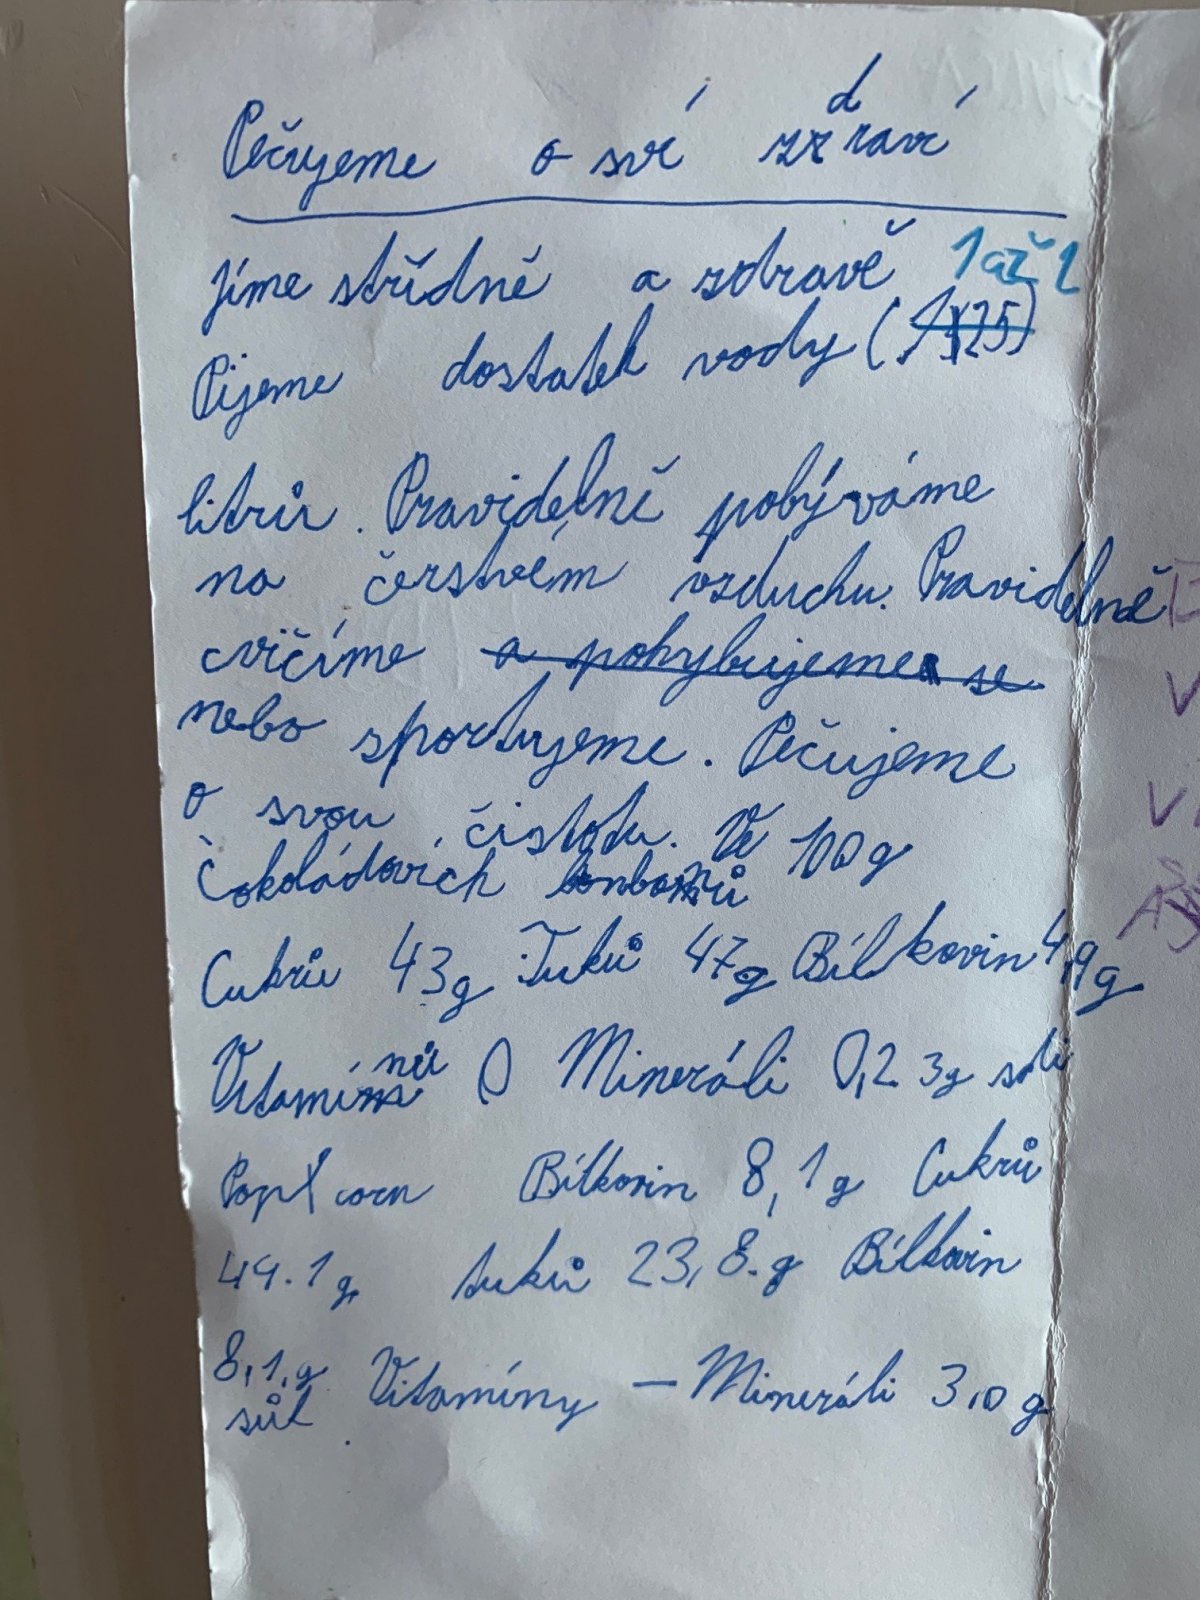 Pečujeme o své zdraví
Jíme střídmě a zdravě 1 až 2
Pijeme dostatek vody (1,25)
litrů. Pravidelně pobýváme
na čerstvém vzduchu. Pravidelně
cvičíme a pohybujeme se
nebo sportujeme. Pečujeme
o svou čistotu. Ve 100g
Čokoládovích bonbonů
Cukrů 43g Tuků 47g Bílkovin 4,9g
Vitamínů 0 Mineráli 0,23g soli
Pop corn Bílkovin 8,1g Cukrů
49.1g, tuků 23,8.g Bílkovin
8,1,g Vitamíny — Mineráli 3,0 g
sůl
V
V